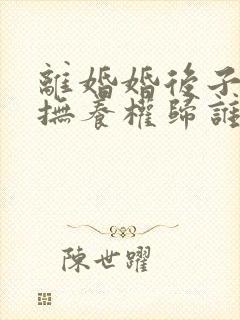 離婚婚後子
撫養權歸誰
陳世躍